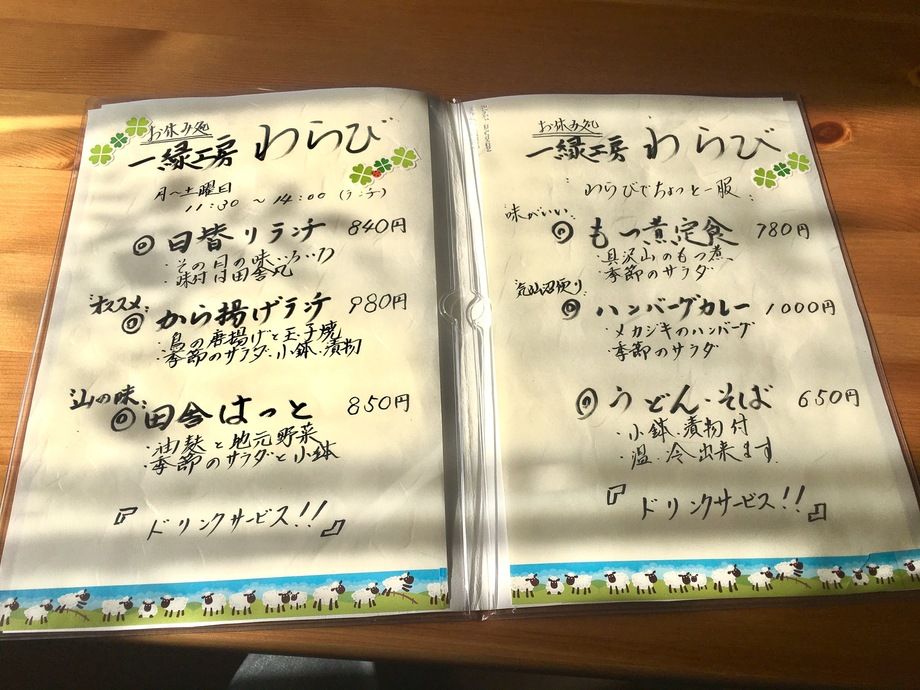 お休み処
一緑工房 わらび
月～土曜日
11:30 ～ 14:00 (ランチ)
◎ 日替りランチ 840円
・その日の味
・味付は田舎丸
オススメ:
◎ から揚げランチ 980円
・鳥の唐揚げと玉子焼
・季節のサラダ・小鉢・漬物
山の味:
◎ 田舎はっと 850円
・油麸と地元野菜
・季節のサラダと小鉢
『ドリンクサービス!!』
お休み処
一緑工房 わらび
わらびでちょっと一服
味がいい:
◎ もつ煮定食 780円
・具沢山のもつ煮
・季節のサラダ
気仙沼便り
◎ ハンバーグカレー 1000円
・メカジキのハンバーグ
・季節のサラダ
◎ うどん・そば 650円
・小鉢・漬物付
・温・冷出来ます
『ドリンクサービス!!』